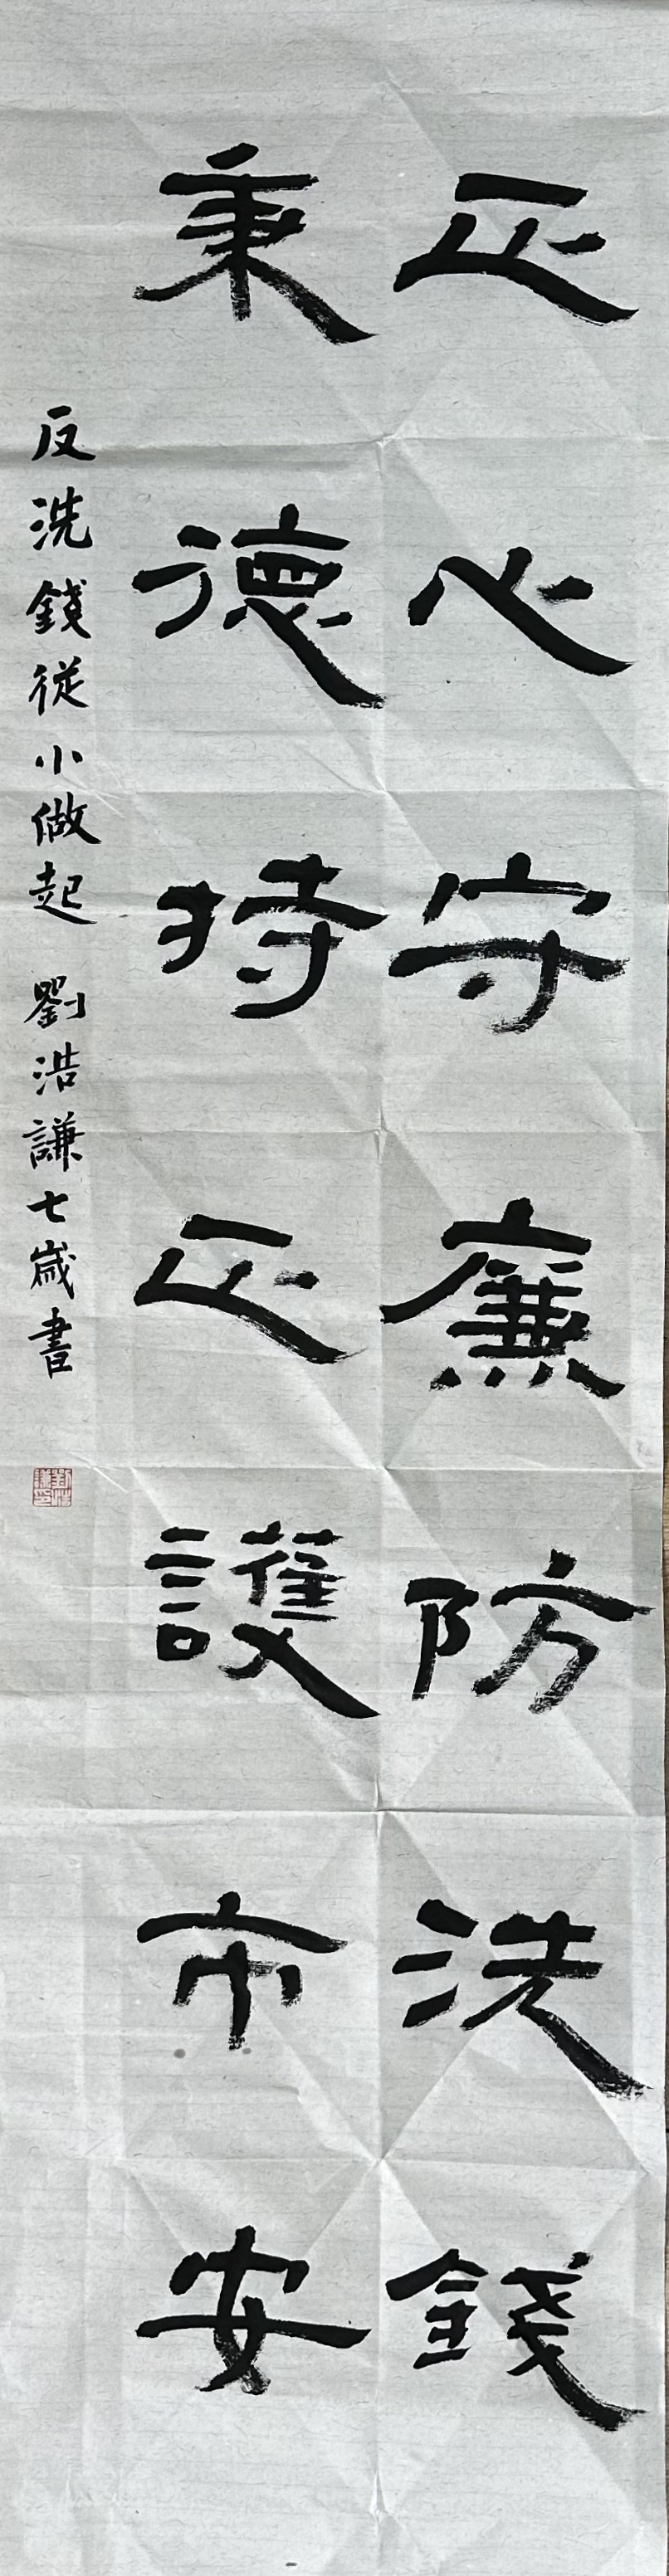 正心守廉防洗錢
秉德持正護市安
反洗錢從小做起 劉浩謙七歲書